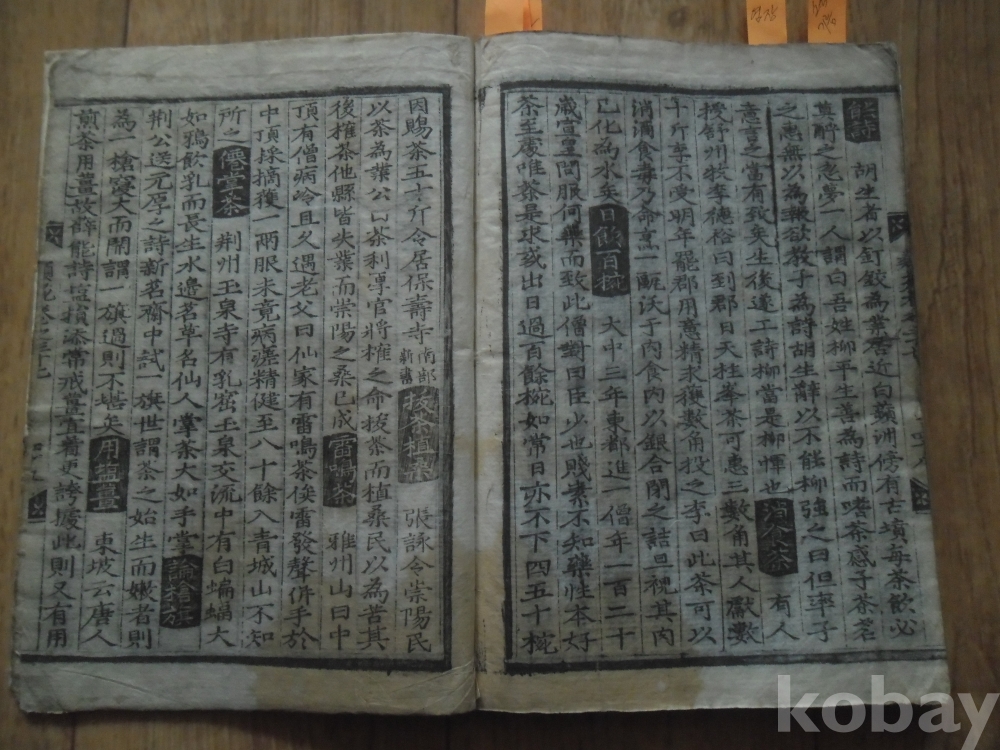 能詩 胡生者以釘鉸為業居近白蘋洲傍有古墳每茶飲必
奠酹之忽夢一人謂曰吾姓柳平生善為詩而嗜茶感子茶茗
之惠無以為報欲教子為詩胡生辭以不能柳強之曰但率子
意言之當有致矣生後遂工詩柳當是柳惲也 消食茶 有人
授舒州牧李德裕曰到郡日天柱峯茶可惠三數角其人獻數
十斤李不受明年罷郡用意精求獲數角投之李曰此茶可以
消酒食毒乃命烹一甌沃于內食內以銀合閉之詰旦視其內
已化為水矣 日飲百椀 大中三年東都進一僧年一百二十
歲宣皇問服何藥而致此僧對曰臣少也賤素不知藥性本好
茶至處唯茶是求或出日過百餘椀如常日亦不下四五十椀
因賜茶五十斤令居保壽寺 南部新書 拔茶植桑 張詠令崇陽民
以茶為業公曰茶利厚官將榷之命拔茶而植桑民以為苦其
後榷茶他縣皆失業而崇陽之桑已成 雷鳴茶 雅州山曰中
頂有僧病冷且久遇老父曰仙家有雷鳴茶俟雷發聲併手於
中頂採摘獲一兩服未竟病瘥精健至八十餘入青城山不知
所之 仙掌茶 荆州玉泉寺有乳窟玉泉交流中有白蝙蝠大
如鴉飲乳而長生水邊茗草名仙人掌茶大如手掌 論槍旗
荆公送元厚之詩新茗齋中試一旗世謂茶之始生而嫩者則
為一槍寖大而開謂一旗過則不堪矣 用鹽薑 東坡云唐人
煎茶用薑故薛能詩塩損添常戒薑宜著更誇據此則又有用
kobay